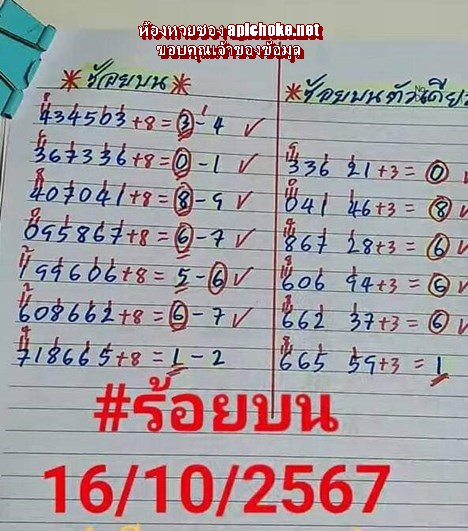 ห้องหวยซอง apichoke.net
ขอบคุณเจ้าของข้อมูล
*ร้อยบน*
*ร้อยบนตัวเดียว
434503+8=3-4 ✓
367336+8=0-1 ✓
407041+8=8-9 ✓
095867+8=6-7 ✓
194606+8=5-6 ✓
608662+8=6-7 ✓
718665+8=1-2
336 21+3=0
041 46+3=8
867 28+3=6
606 94+3=6
662 37+3=6
665 59+3=1
#ร้อยบน
16/10/2567